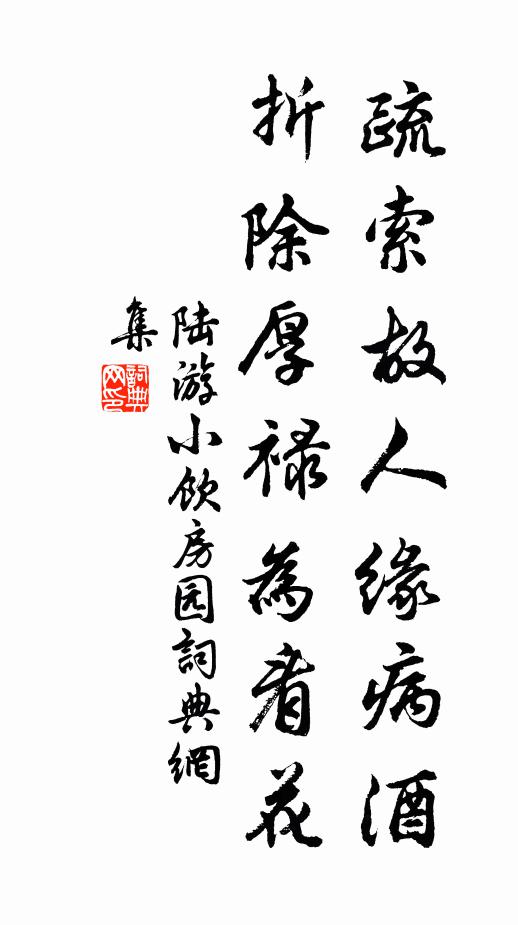 疏索故人緣病酒
折除厚禄為看花
陆游小飲房园詞典網
集
詞典网印